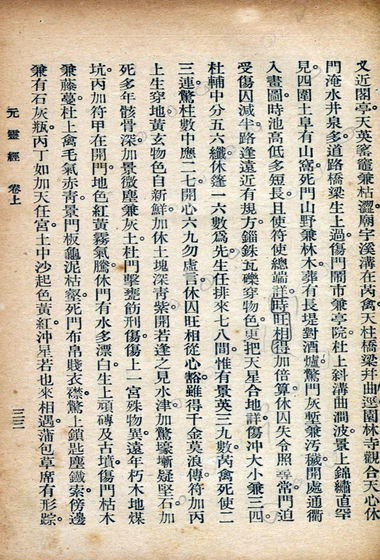 又近閣亭。天英客竈兼枯澀廟宇溪溝在芮禽天柱橋梁井曲徑園林寺觀合天心休
門淹水井泉多道路橋梁生上過傷門鬧市兼亭院杜上斜溝曲澗波景上錦繡直罕
見四圍土阜有山窩死門山野兼林木葬有長堤對酒爐驚門灰塹兼汚穢開處通衢
入畫圖時池高低多短長且使符使總端詳時旺相得加倍算休囚失令照尋常門迫
受傷囚減半路逢遠近有現方鎦銖瓦礫穿物色更把天星合地詳傷沖大小兼三四
杜輔中分五六纖休蓬一六數為先生任排來七八間惟有景英三九數芮禽死使二
三連驚柱數中應二七開心六九勿虛言休囚旺相從心豁雖得千金莫浪傳符加丙
上生穿地黃玄物色自新鮮加休土塊深青紫開若逢之見水津加驚壕塹疑堅石加
死多年骸骨深加景微塵兼灰土杜門擊甕筋刑傷傷上一宮殊物異遠年朽木地煤
坑丙加符甲在開門地色紅黃霧氣騰休門有水多漂白生上頑磚及古墳傷門枯木
兼藤蔓杜上禽毛氣赤青景門板龜泥枯壑死門布帛賤衣襟驚上鎖匙塵鐵索傍邊
兼有石灰瓶丙丁如加天任宮土中沙起色黃紅沖星若也來相遇蒲包草席有形踪。
元靈經 卷上 三三